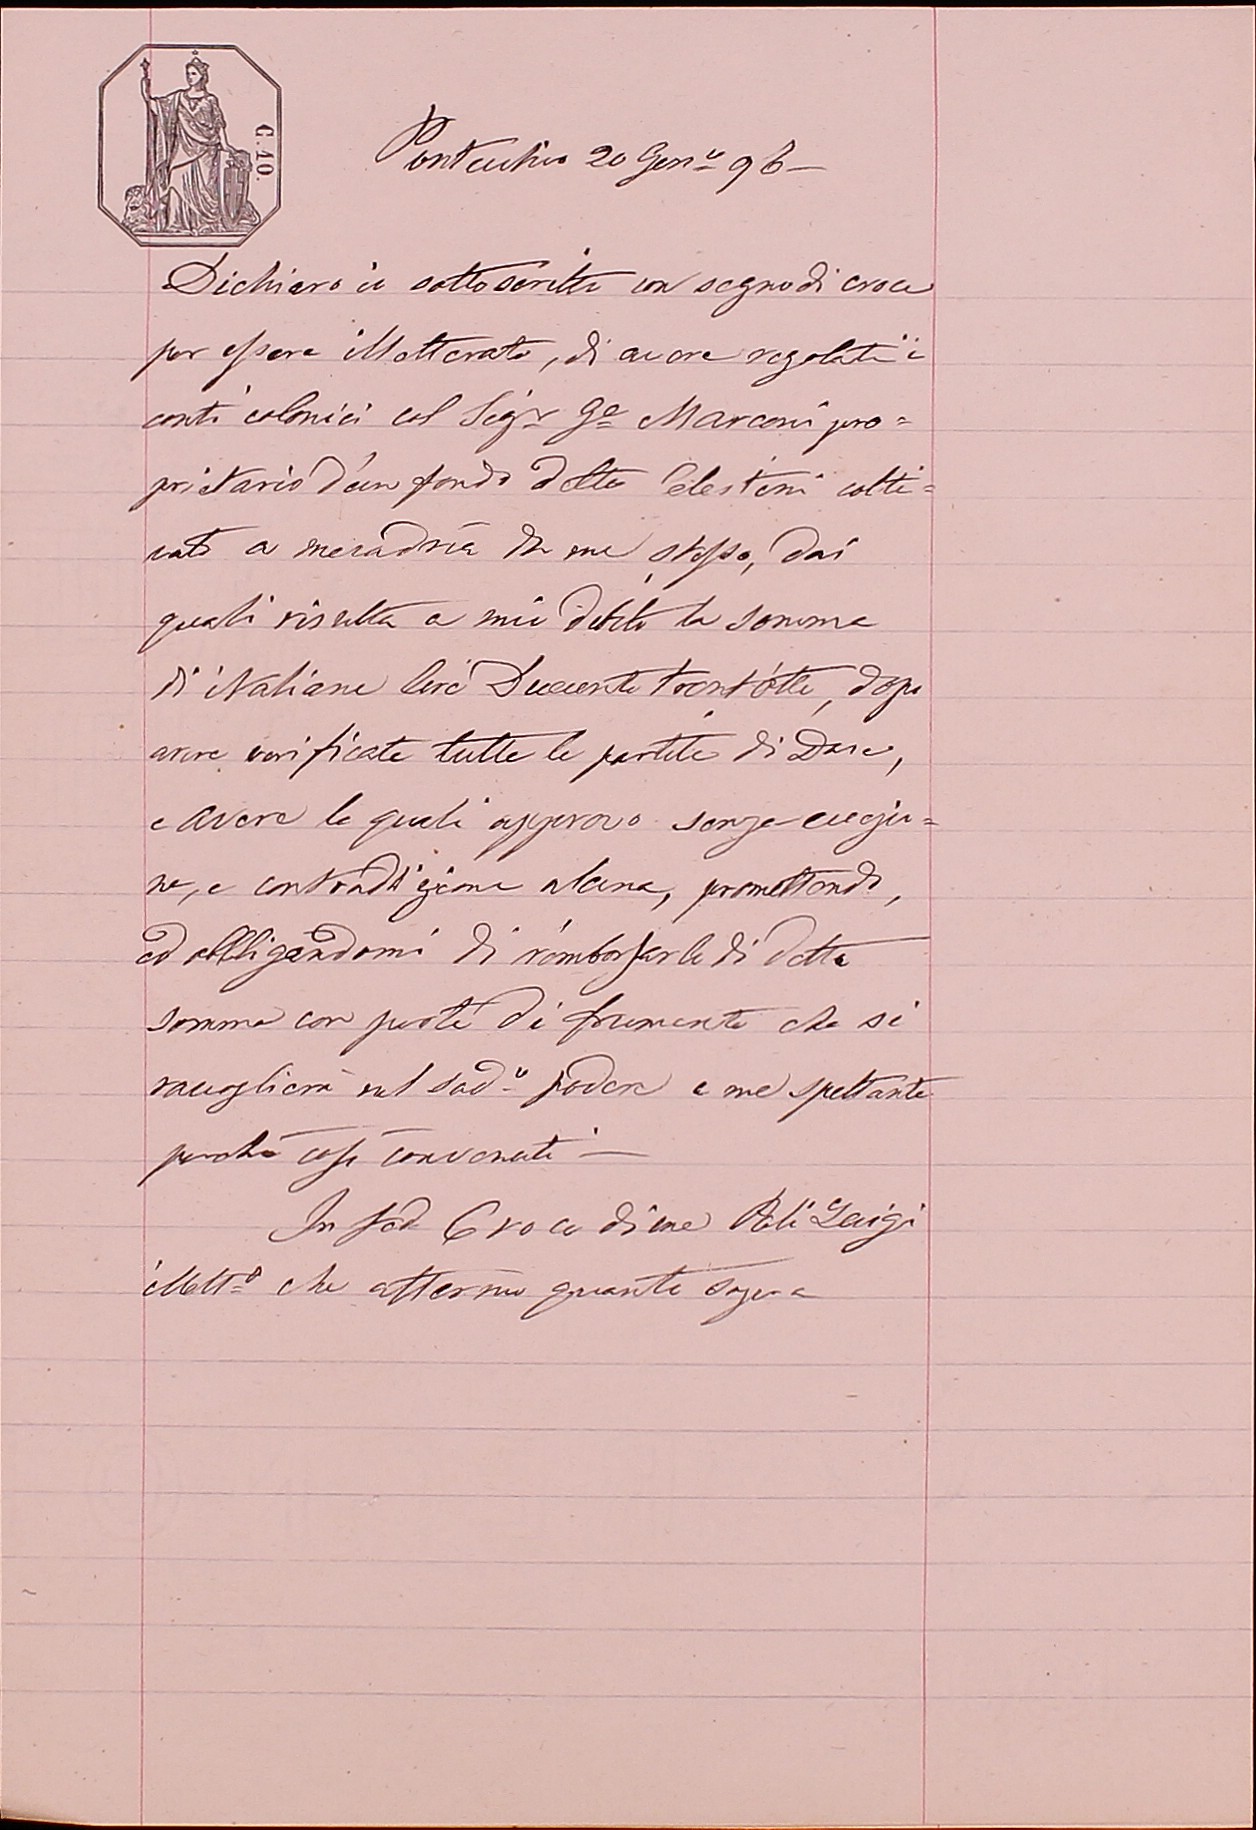 C. 10.
Pontecchio 20 Genº 96 —
Dichiaro io sottoscritto con segno di croce
per essere illetterato, di avere regolati i
conti colonici col Sigr Ge Marconi pro=
prietario d'un fondo detto Celestini colti=
vato a mezadria da me stesso, dai
quali risulta a mio debito la somma
di italiane lire Duecento trent'otto, dopo
avere verificate tutte le partite di Dare,
e avere le quali approvo senza eccezio=
ne, e contraddizione alcuna, promettendo,
ed obbligandomi di rimborsarlo di detta
somma con parte di frumento che si
raccoglierà nel sudº podere a me spettante
perché così convenuti —
In fed Croce di me Poli Luigi
illettº che affermo quanto sopra